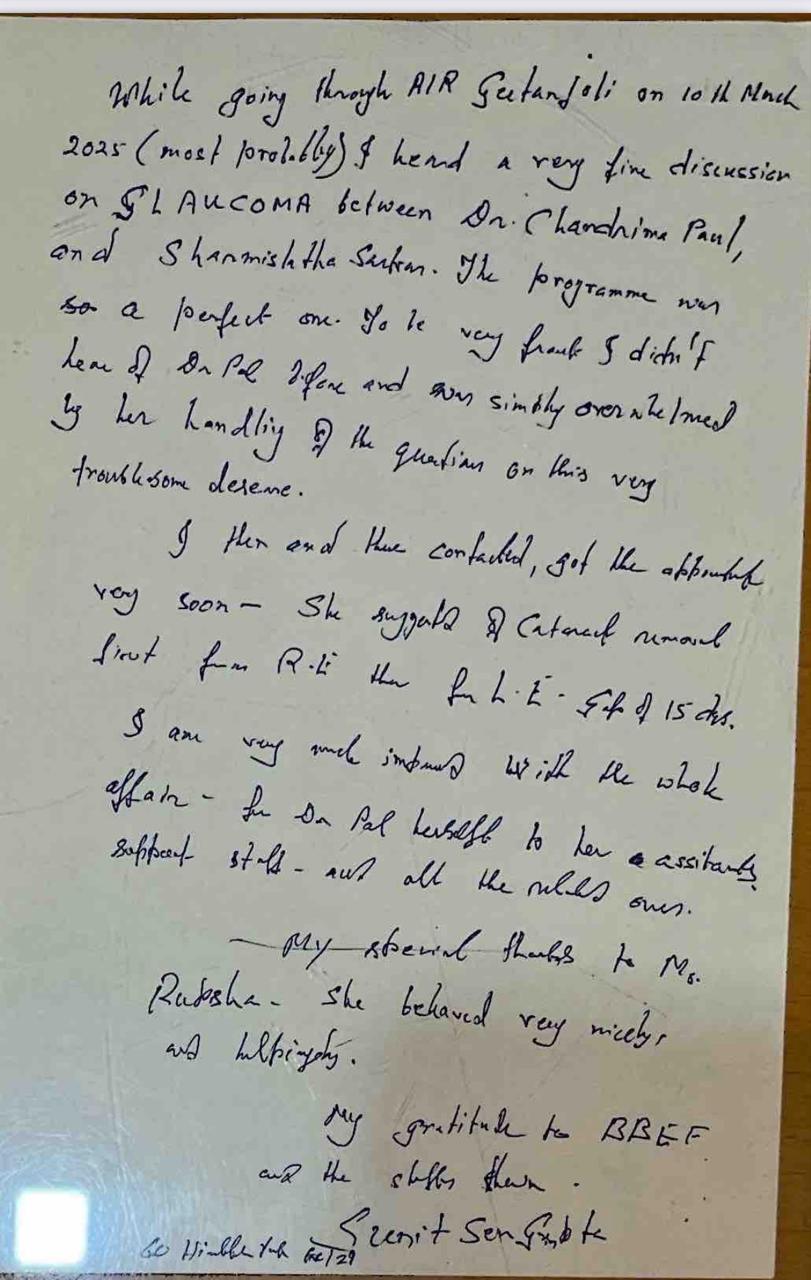 While going through AIR Geetanjali on 10 th March
2025 (most probably) I heard a very fine discussion
on GLAUCOMA between Dr. Chandrima Paul,
and Sharmishtha Sarkar. The programme was
so a perfect one. To be very frank I didn't
hear of Dr Pal before and was simply overwhelmed
by her handlig of the questions on this very
troublesome desease.
I then and there contacted, got the appointment
very soon - She suggested of Cataract removal
first from R.E then for L.E - Gap of 15 dys.
I am very much impressed with the whole
affair - for Dr Pal herself to her assitants,
support staff - and all the related ones.
- My special thanks to Ms.
She behaved very nicely,
and helpingly.
My gratitude to BBEF
and the staffs there.
Sen Gupta